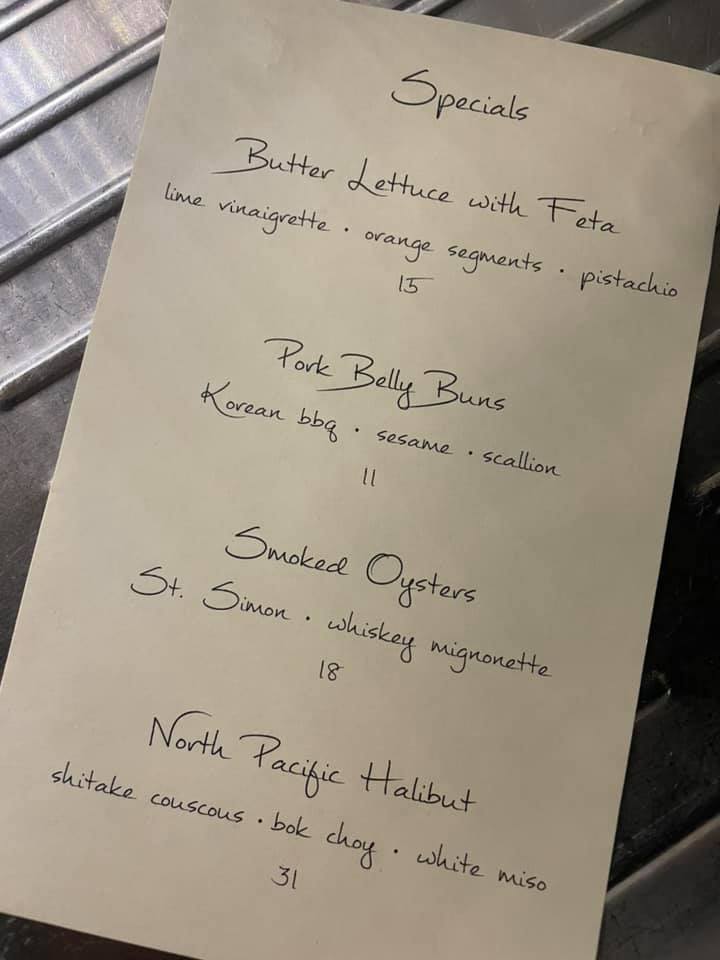 Specials
Butter Lettuce with Feta
lime vinaigrette · orange segments · pistachio
15
Pork Belly Buns
Korean bbq · sesame · scallion
11
Smoked Oysters
St. Simon · whiskey mignonette
18
North Pacific Halibut
shitake couscous · bok choy · white miso
31